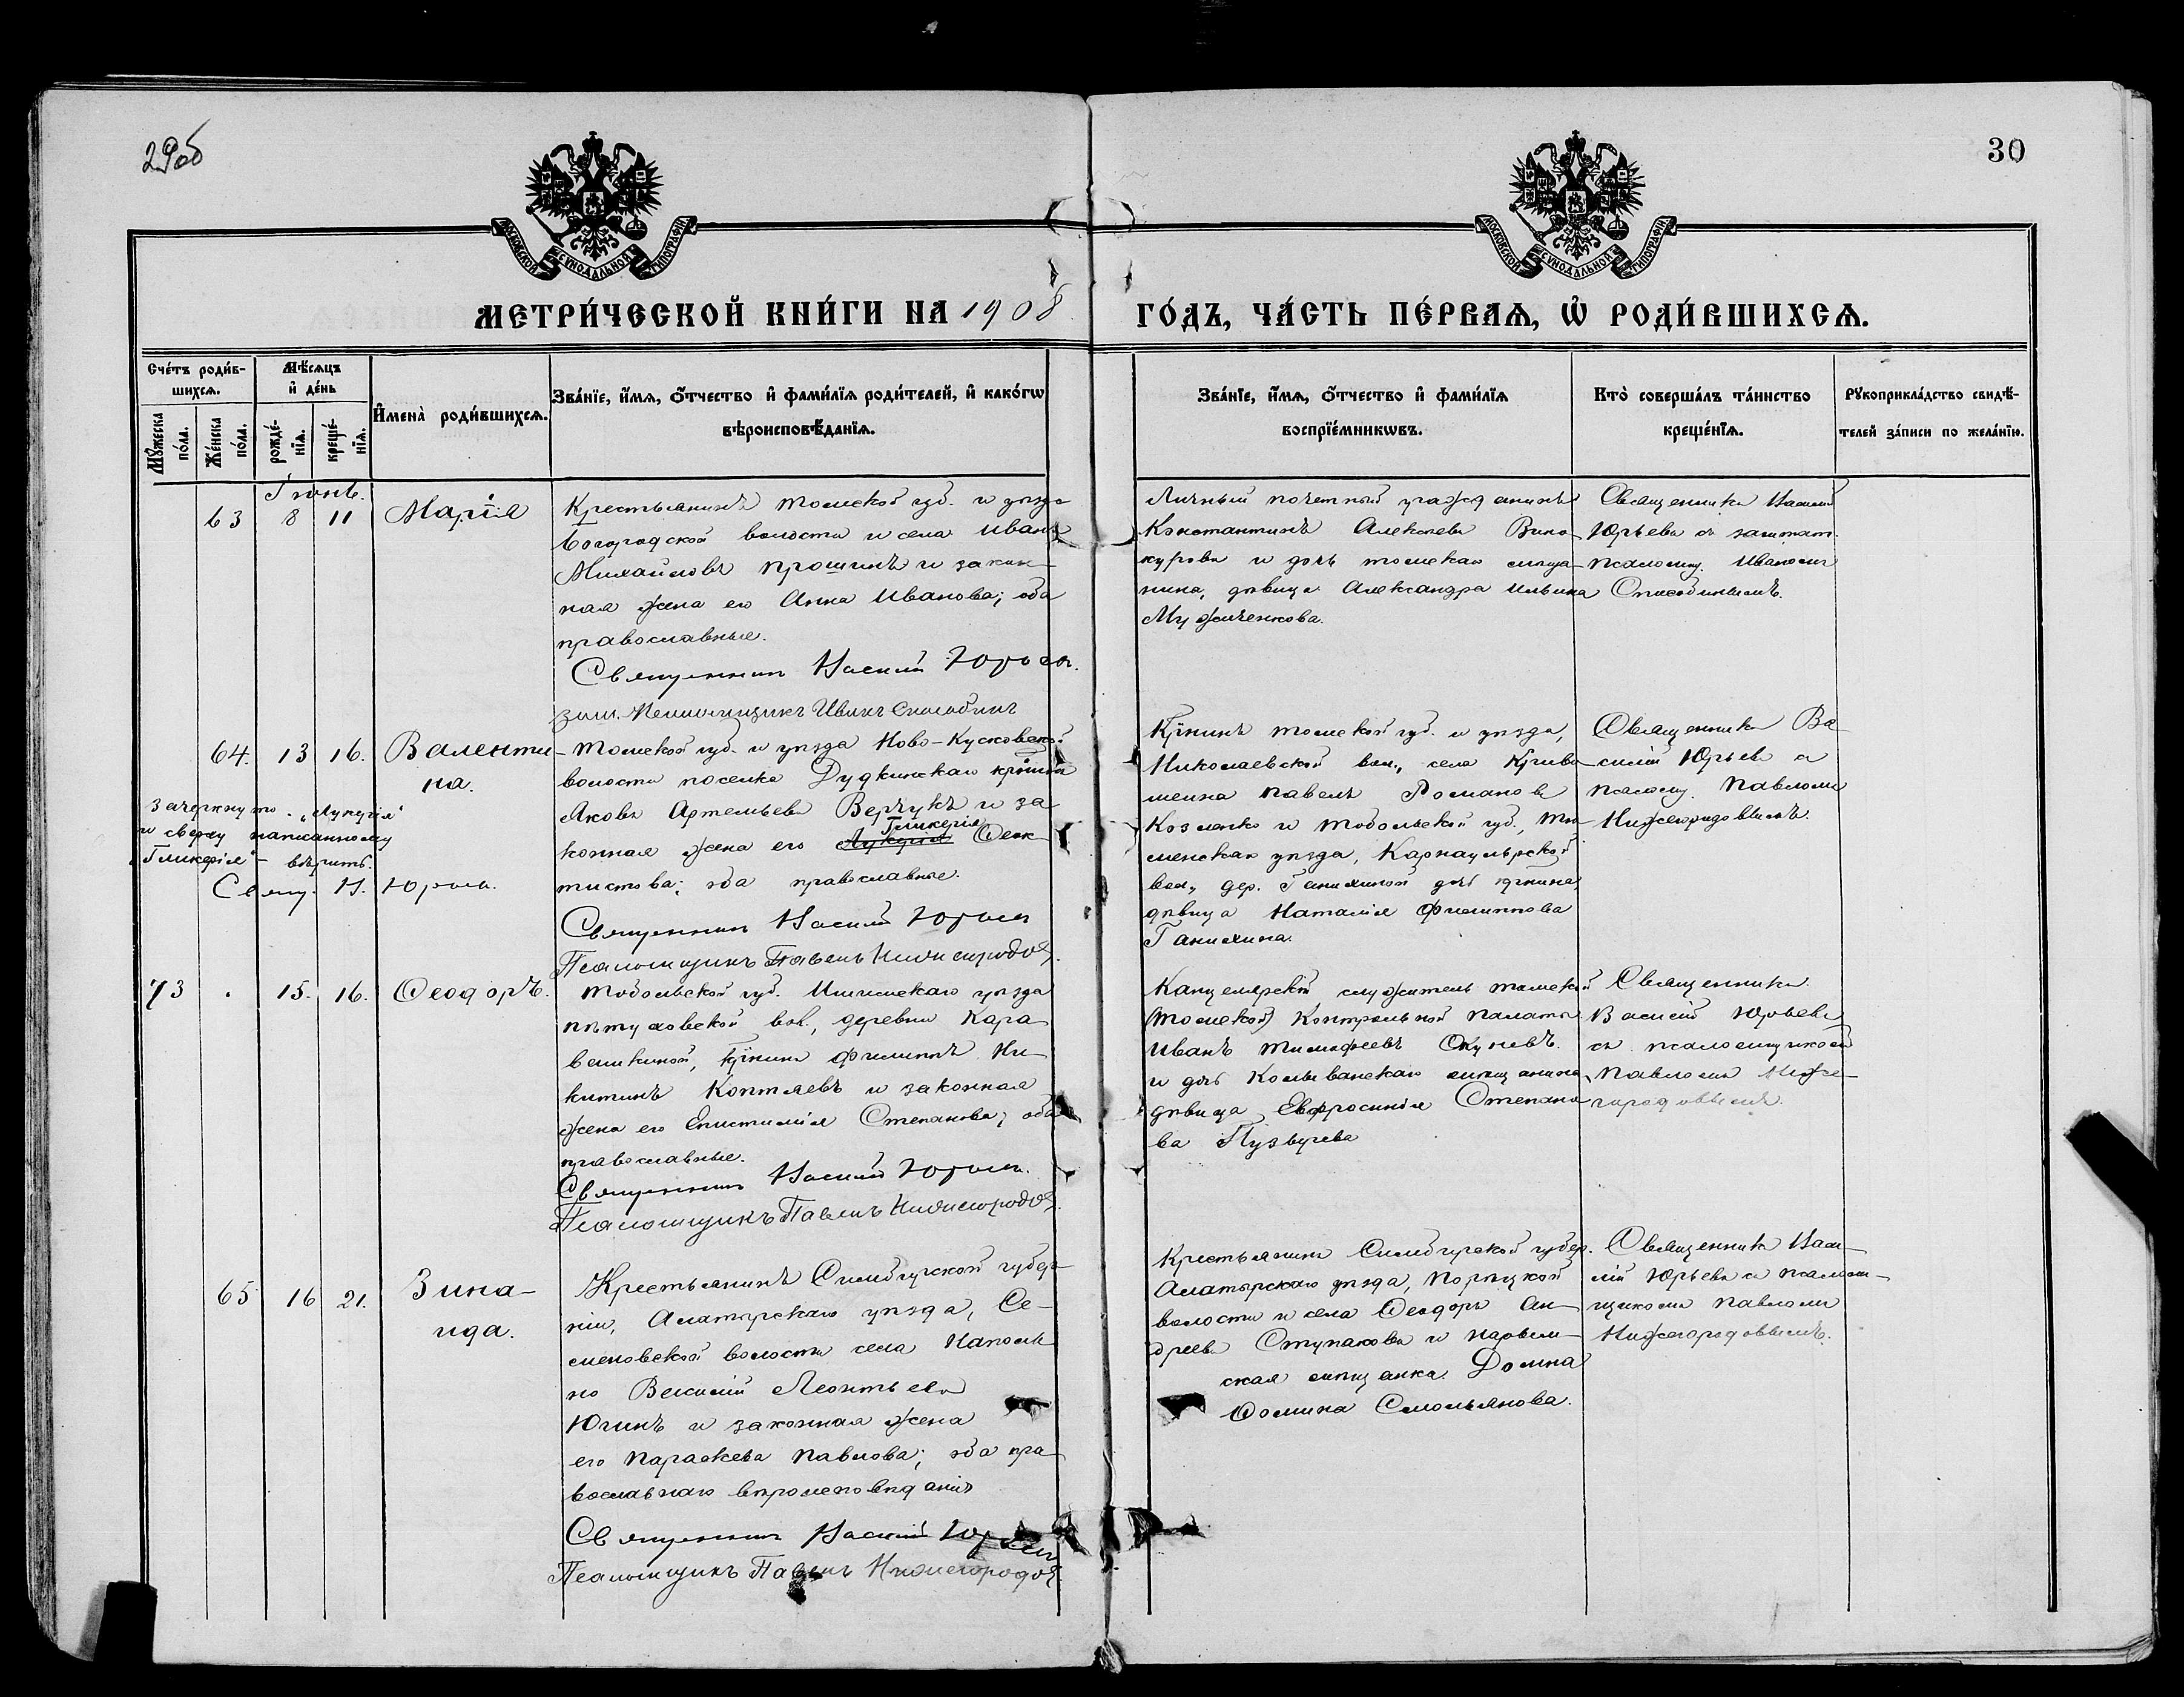 29об
30
МОСКОВСКОЙ СѴНОДАЛЬНОЙ ТИПОГРАФІИ
МОСКОВСКОЙ СѴНОДАЛЬНОЙ ТИПОГРАФІИ
МЕТРИ́ЧЕСКОЙ КНИ́ГИ НА 1908
ГО́ДЪ, ЧА́СТЬ ПЕ́РВАѦ, Ѡ҆ РОДИ́ВШИХСѦ.
Сче́тъ роди́в-
шихсѧ.
Мѣ́сѧцъ
и҆ де́нь
Мꙋ́жеска
по́ла.
Же́нска
по́ла.
рожде́-
нїѧ.
креще́-
нїѧ.
И҆мена̀ роди́вшихсѧ.
Зва́нїе, и҆́мѧ, ѻ҆́тчество и҆ фами́лїѧ роди́телей, и҆ како́гѡ
вѣроисповѣ́данїѧ.
Зва́нїе, и҆́мѧ, ѻ҆́тчество и҆ фами́лїѧ
воспрїе́мникѡвъ.
Кто̀ соверша́лъ та́инство
креще́нїѧ.
Рꙋкоприкла́дство свидѣ́-
телей за́писи по жела́нїю.
Іюнь.
63 8 11 Марія
Крестьянинъ Томской губ. и уѣзда
Богородской волости и села Иванъ
Михайловъ Прошинъ и закон-
ная жена его Анна Иванова; оба
православные.
Священникъ Василій Юрьевъ.
заш. Псаломщикъ Иванъ Способинъ
Личный почетный гражданинъ
Константинъ Алексѣевъ Вино-
куровъ и дочь томскаго мѣща-
нина, дѣвица Александра Ильина
Мужиченкова.
Священникъ Василій
Юрьевъ съ заштат.
псаломщ. Иваномъ
Способинымъ.
64. 13 16. Валенти-
на.
Зачеркнутому „Лукерія"
и сверху написанному
„Гликерія" – вѣрить.
Свящ. В. Юрьевъ.
Томской губ. и уѣзда Ново-Кусковской
волости поселка Дудкинскаго кр҃нинъ
Яковъ Артемьевъ Верчукъ и за-
Гликерія
конная жена его Лукерія Ѳеок-
тистова; оба православные.
Священникъ Василій Юрьевъ
Псаломщикъ Павелъ Нижегородов.
Кр҃нинъ Томской губ. и уѣзда,
Николаевской вол., села Криво-
шеина Павелъ Романовъ
Козленко и Тобольской губ., Тю-
менскаго уѣзда,
вол., дер. Ганихиной дочь кр҃нина,
дѣвица Наталія Филиппова
Ганихина.
Священникъ Ва-
силій Юрьевъ съ
псаломщ. Павломъ
Нижегородовымъ.
73 . 15. 16. Ѳеодоръ.
Тобольской губ. Ишимскаго уѣзда
Пѣтуховской вол., деревни Кара-
вашкиной, кр҃нинъ Филиппъ Ни-
китинъ Коптяевъ и законная
жена его Епистимія Степанова; оба
православные.
Священникъ Василій Юрьевъ.
Псаломщикъ Павелъ Нижегородов.
Канцелярскій служитель томской
(Томской) Контрольной Палаты
Иванъ Тимофеевъ Окуневъ
и дочь Колыванскаго мѣщанина,
дѣвица Евфросинія Степано-
ва Пузырева
Священникъ
Василій Юрьевъ
съ псаломщикомъ
Павломъ Ниже-
городовымъ.
65 16 21. Зина-
ида.
Крестьянинъ Симбирской губер-
ніи, Алатырскаго уѣзда, Се-
меновской волости села Наполь-
но Василій Леонтьевъ
Югинъ и законная жена
его Параскева Павлова; оба пра-
вославнаго вѣроисповѣданія
Священникъ Василій Юрьевъ
Псаломщикъ Павелъ Нижегородов.
Крестьянинъ Симбирской губер.
Алатырскаго уѣзда, Порѣцкой
волости и села Ѳеодоръ Ан-
дреевъ Ступаковъ и Нарым-
ская мѣщанка Домна
Ѳомина Смольянова.
Священникъ Васи-
лій Юрьевъ съ псалом-
щикомъ Павломъ
Нижегородовымъ.